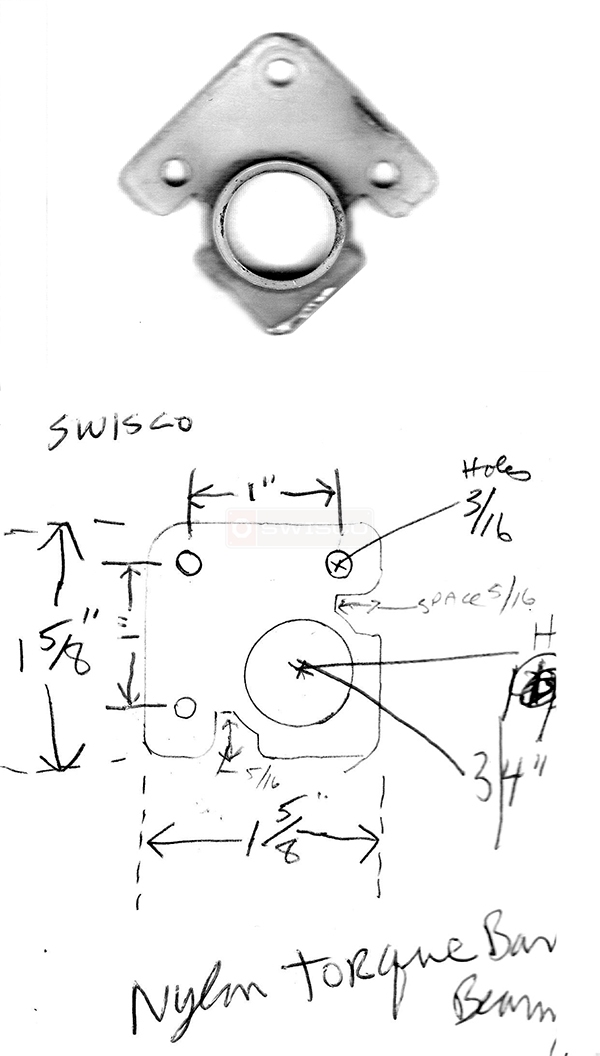 SWISCO
Holes
3/16
1"
SWISCO
SPACE 5/16
1"
1 5/8"
H
3/4"
5/16
1 5/8"
Nylon TORque Bar
Beam